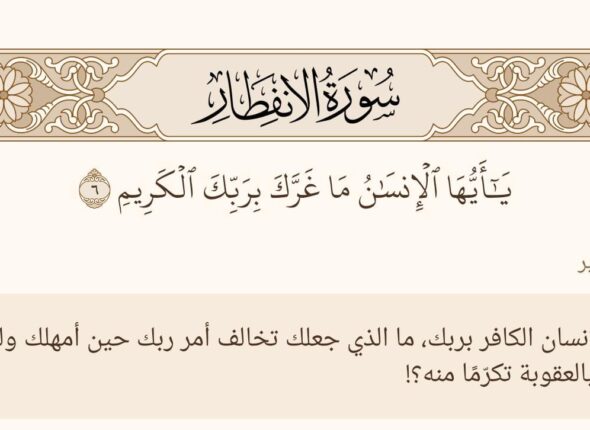 سُورَةُ الانفِطَارِ
يَـٰٓأَيُّهَا ٱلْإِنسَـٰنُ مَا غَرَّكَ بِرَبِّكَ ٱلْكَرِيمِ ٦
الكافر بربك، ما الذي جعلك تخالف أمر ربك حين أمهلك
تكرّمًا منه؟!